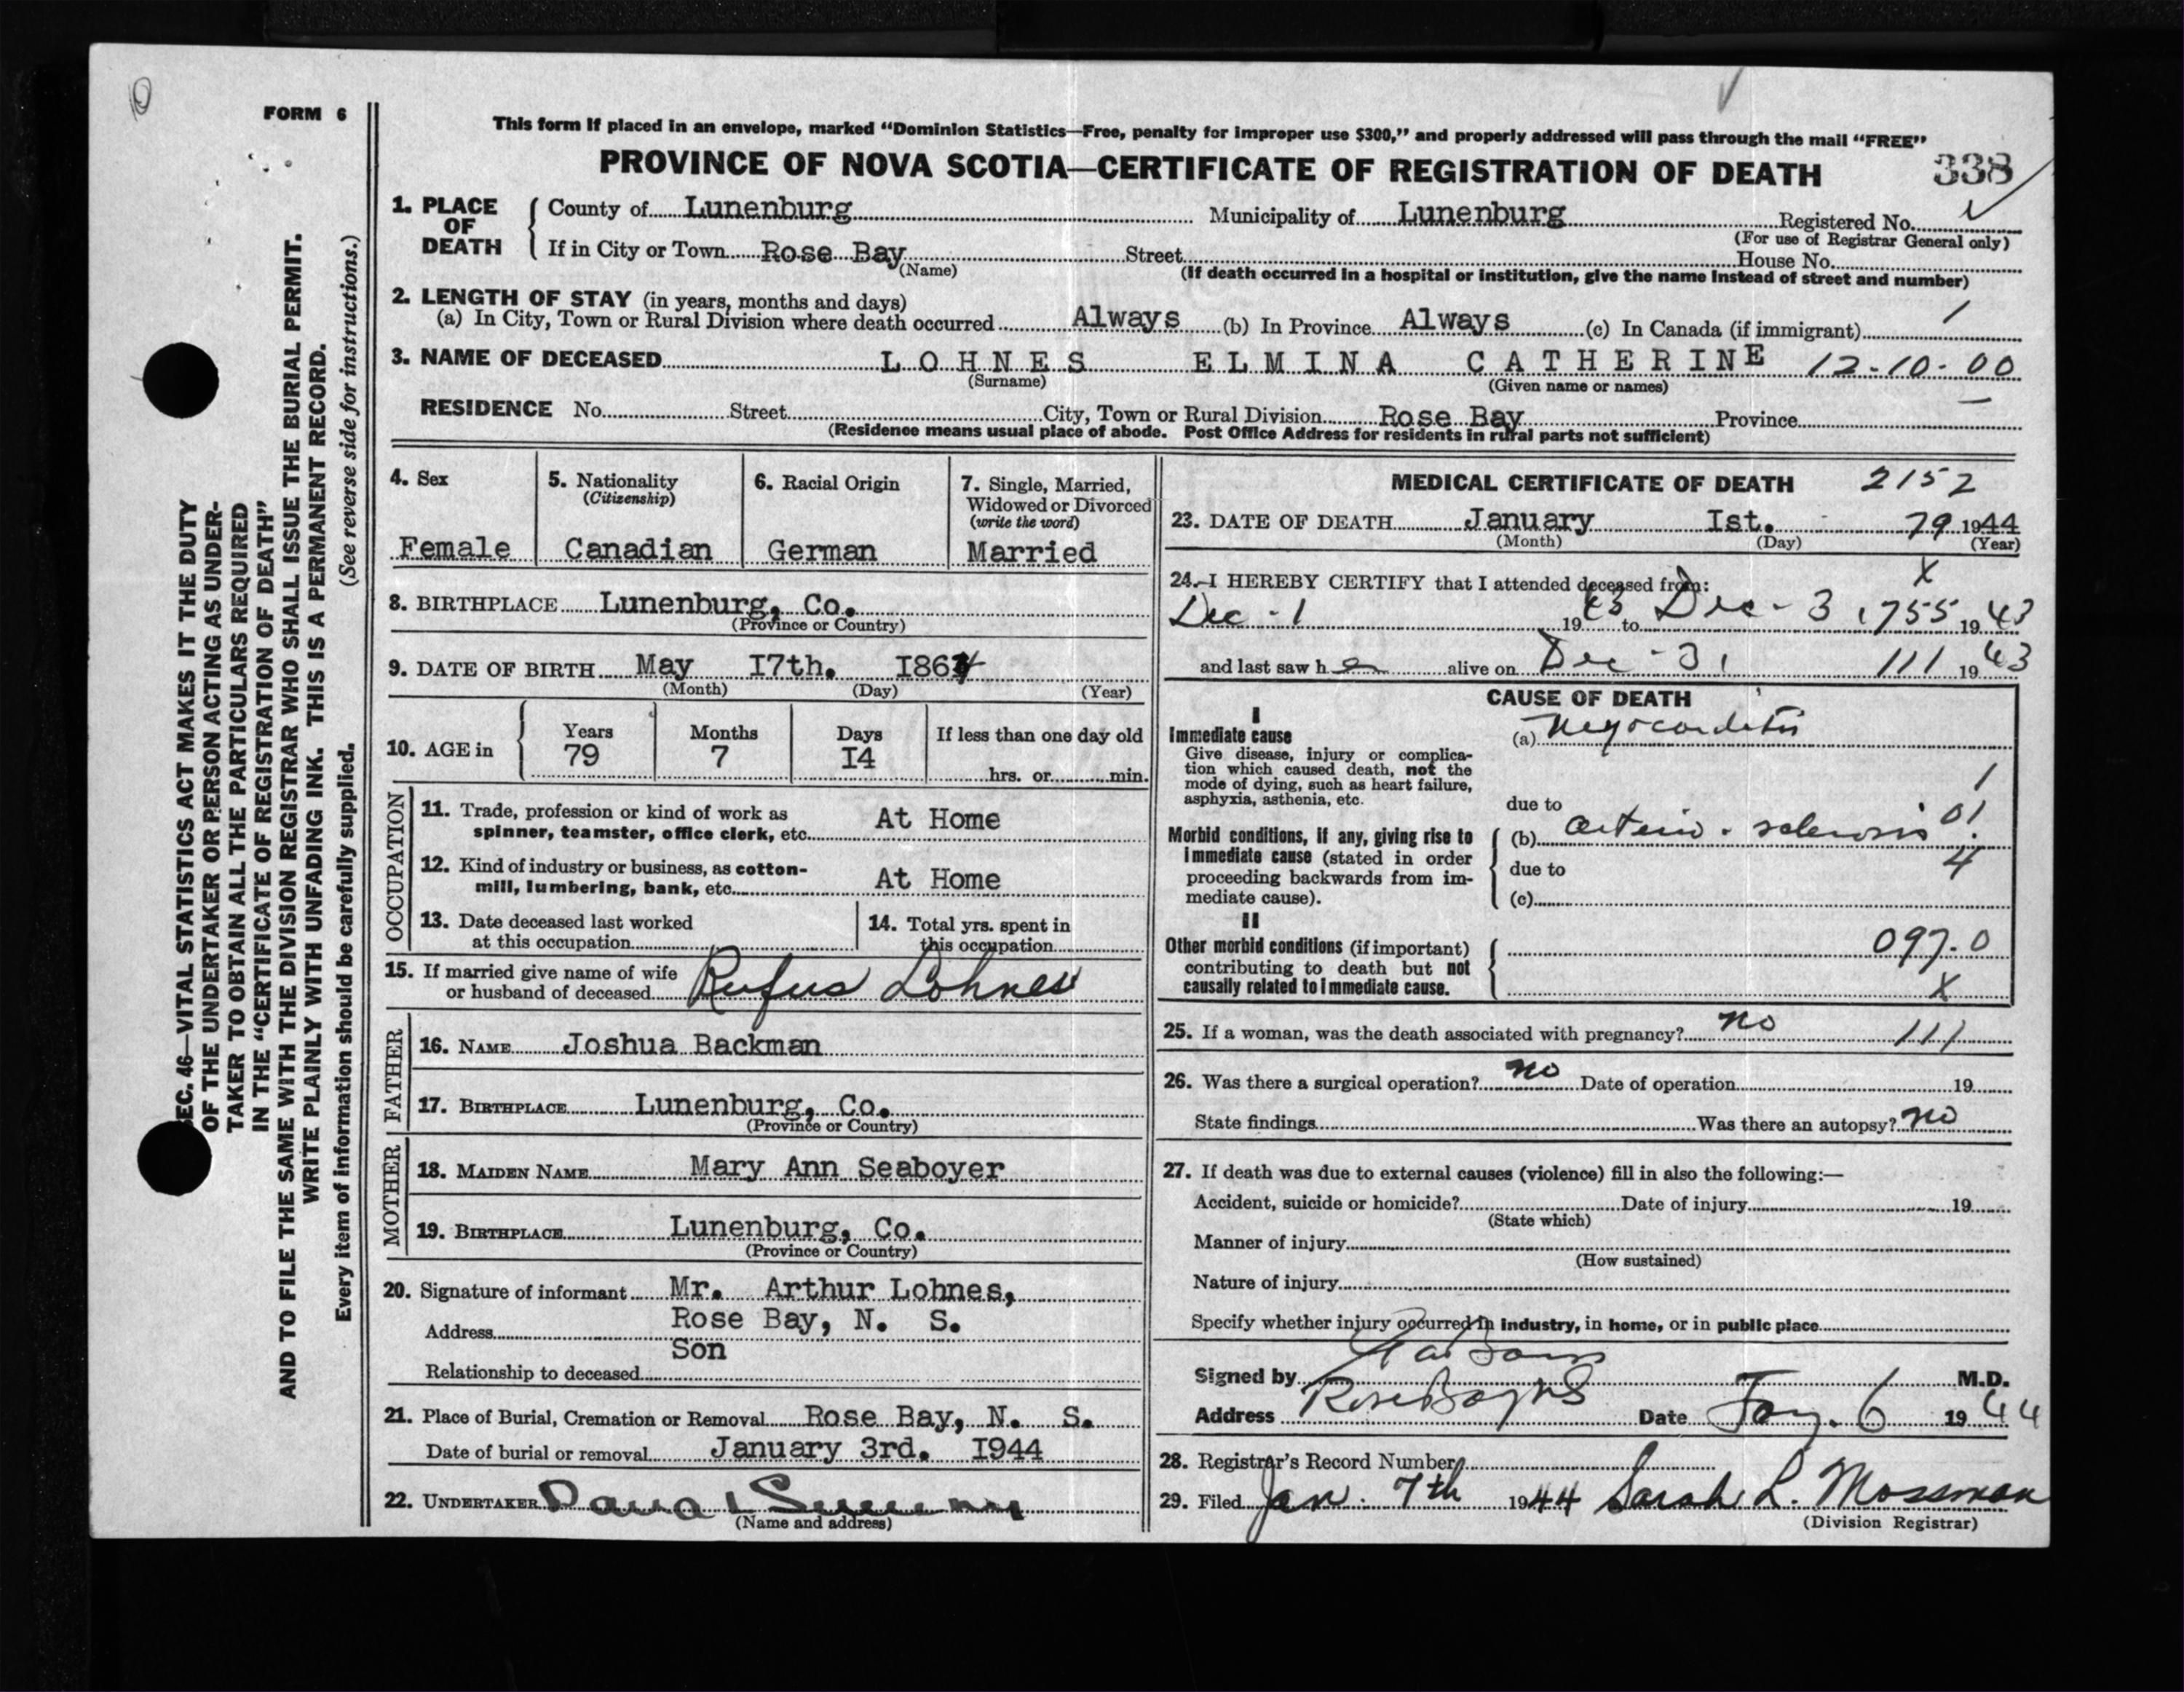 FORM 6
This form if placed in an envelope, marked "Dominion Statistics—Free, penalty for improper use $300," and properly addressed will pass through the mail "FREE"
PROVINCE OF NOVA SCOTIA—CERTIFICATE OF REGISTRATION OF DEATH 338
1. PLACE OF DEATH County of Lunenburg Municipality of Lunenburg Registered No.
(For use of Registrar General only)
If in City or Town Rose Bay Street House No.
(Name) (If death occurred in a hospital or institution, give the name instead of street and number)
2. LENGTH OF STAY (in years, months and days)
(a) In City, Town or Rural Division where death occurred Always (b) In Province Always (c) In Canada (if immigrant) /
3. NAME OF DECEASED LOHNES ELMINA CATHERINE 12-10-00
(Surname) (Given name or names)
RESIDENCE No. Street City, Town or Rural Division Rose Bay Province
(Residence means usual place of abode. Post Office Address for residents in rural parts not sufficient)
4. Sex
Female
5. Nationality
(Citizenship)
Canadian
6. Racial Origin
German
7. Single, Married,
Widowed or Divorced
(write the word)
Married
8. BIRTHPLACE Lunenburg, Co.
(Province or Country)
9. DATE OF BIRTH May I7th. I864
(Month) (Day) (Year)
10. AGE in Years Months Days If less than one day old
79 7 I4
hrs. or min.
OCCUPATION
11. Trade, profession or kind of work as
spinner, teamster, office clerk, etc. At Home
12. Kind of industry or business, as cotton-
mill, lumbering, bank, etc. At Home
13. Date deceased last worked
at this occupation
14. Total yrs. spent in
this occupation
15. If married give name of wife
or husband of deceased Rufus Lohnes
FATHER
16. NAME Joshua Backman
17. BIRTHPLACE Lunenburg, Co.
(Province or Country)
MOTHER
18. MAIDEN NAME Mary Ann Seaboyer
19. BIRTHPLACE Lunenburg, Co.
(Province or Country)
20. Signature of informant Mr. Arthur Lohnes,
Address Rose Bay, N. S.
Relationship to deceased Son
21. Place of Burial, Cremation or Removal Rose Bay, N. S.
Date of burial or removal January 3rd. I944
22. UNDERTAKER
(Name and address)
MEDICAL CERTIFICATE OF DEATH 2152
23. DATE OF DEATH January Ist. 79 1944
(Month) (Day) (Year)
24. I HEREBY CERTIFY that I attended deceased from: X
Dec - 1 1943 to Dec - 31 755 1943
and last saw her alive on Dec - 31 111 1943
CAUSE OF DEATH
I
Immediate cause (a) Myocarditis
Give disease, injury or complica-
tion which caused death, not the
mode of dying, such as heart failure,
asphyxia, asthenia, etc.
1
due to
Morbid conditions, if any, giving rise to
immediate cause (stated in order
proceeding backwards from im-
mediate cause).
(b) arterio-sclerosis 01
due to 4
(c)
II
Other morbid conditions (if important)
contributing to death but not
causally related to immediate cause.
097.0
X
25. If a woman, was the death associated with pregnancy? no 111
26. Was there a surgical operation? no Date of operation 19
State findings Was there an autopsy? no
27. If death was due to external causes (violence) fill in also the following:—
Accident, suicide or homicide? Date of injury 19
(State which)
Manner of injury
(How sustained)
Nature of injury
Specify whether injury occurred in industry, in home, or in public place
Signed by M.D.
Address Rose Bay NS Date Jany. 6 1944
28. Registrar's Record Number
29. Filed Jan. 7th 1944 Sarah L. Mossman
(Division Registrar)
SEC. 46—VITAL STATISTICS ACT MAKES IT THE DUTY
OF THE UNDERTAKER OR PERSON ACTING AS UNDER-
TAKER TO OBTAIN ALL THE PARTICULARS REQUIRED
IN THE "CERTIFICATE OF REGISTRATION OF DEATH"
AND TO FILE THE SAME WITH THE DIVISION REGISTRAR WHO SHALL ISSUE THE BURIAL PERMIT.
WRITE PLAINLY WITH UNFADING INK. THIS IS A PERMANENT RECORD.
Every item of information should be carefully supplied. (See reverse side for instructions.)